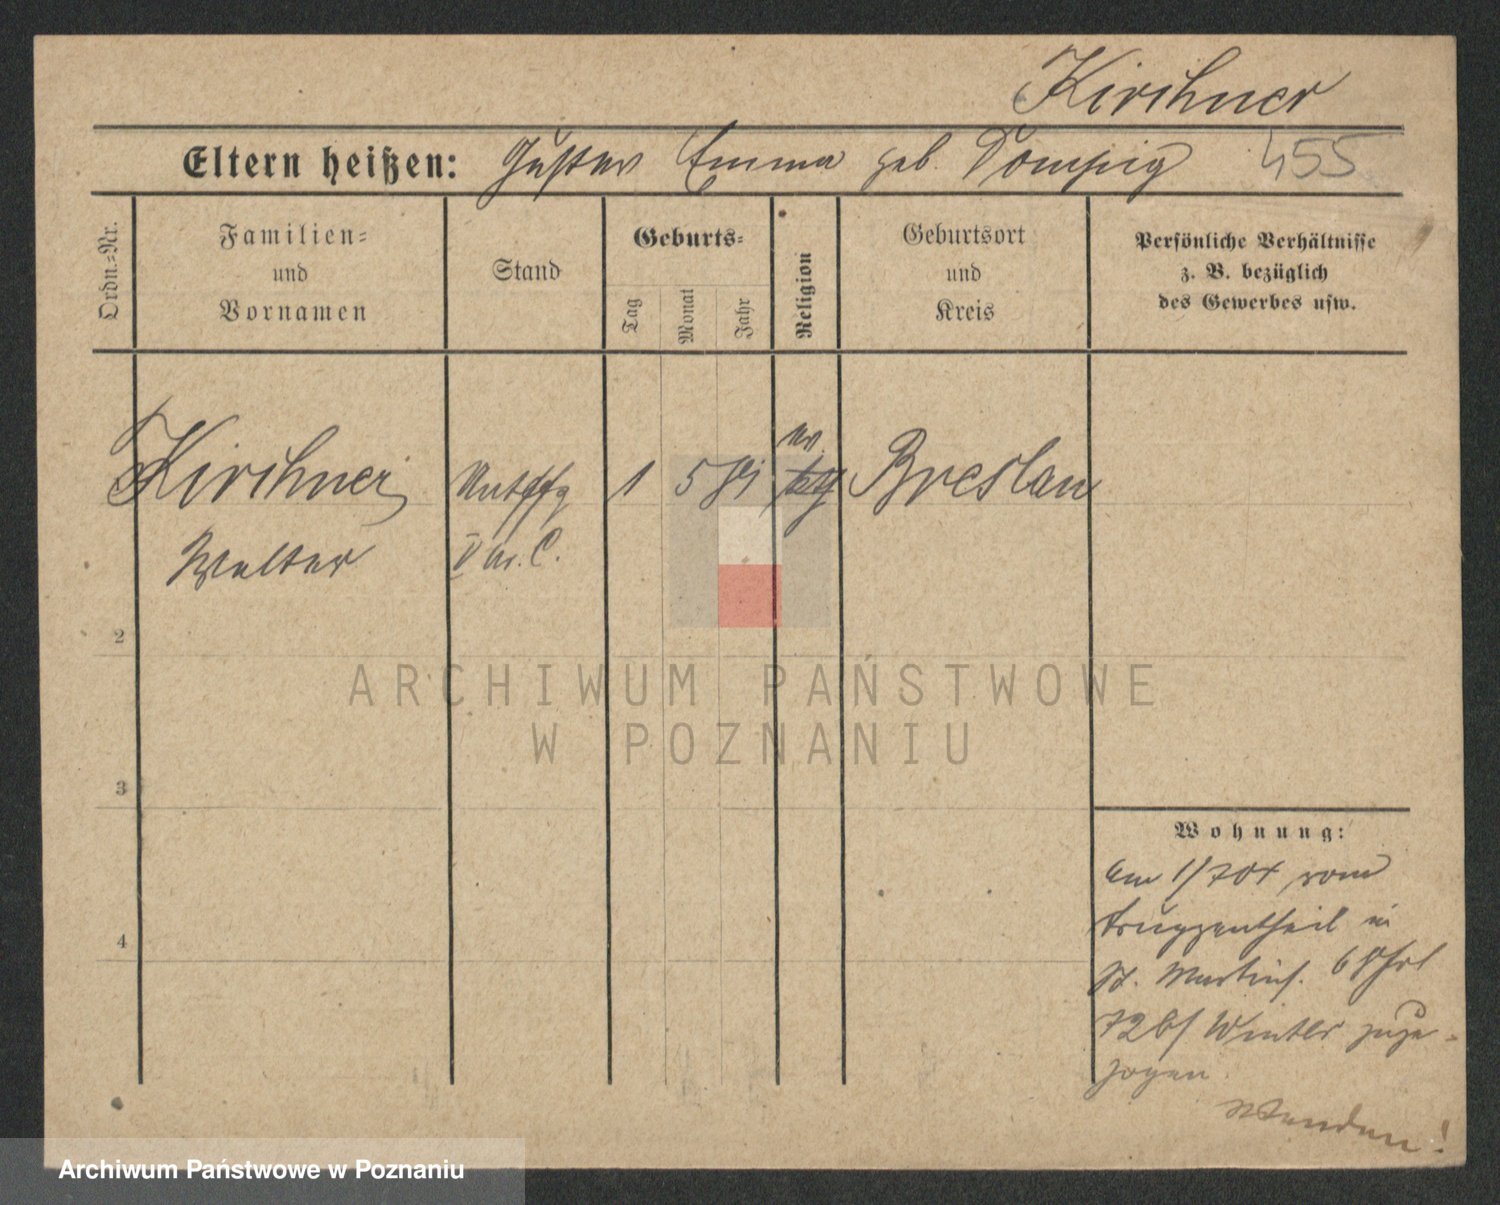 Kirchner
Eltern heißen: Gustav Emma geb. Dompig 455
Ordn.=Nr.
Familien=
und
Vornamen
Stand
Geburts=
Tag
Monat
Jahr
Religion
Geburtsort
und
Kreis
Persönliche Verhältnisse
z. B. bezüglich
des Gewerbes usw.
Kirchner
Walter
1 5 81
ev
Breslau
2
3
4
Wohnung:
am 1/7 04 vom
Truppentheil in
St. Martinstr.
Winter zuge-
zogen
Wenden!
ARCHIWUM PAŃSTWOWE
W POZNANIU
Archiwum Państwowe w Poznaniu